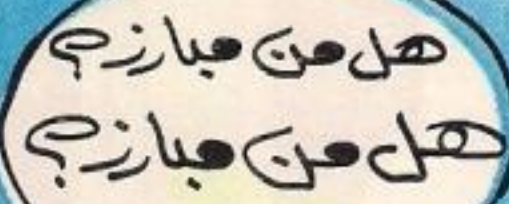 هل من مبارز؟
هل من مبارز؟